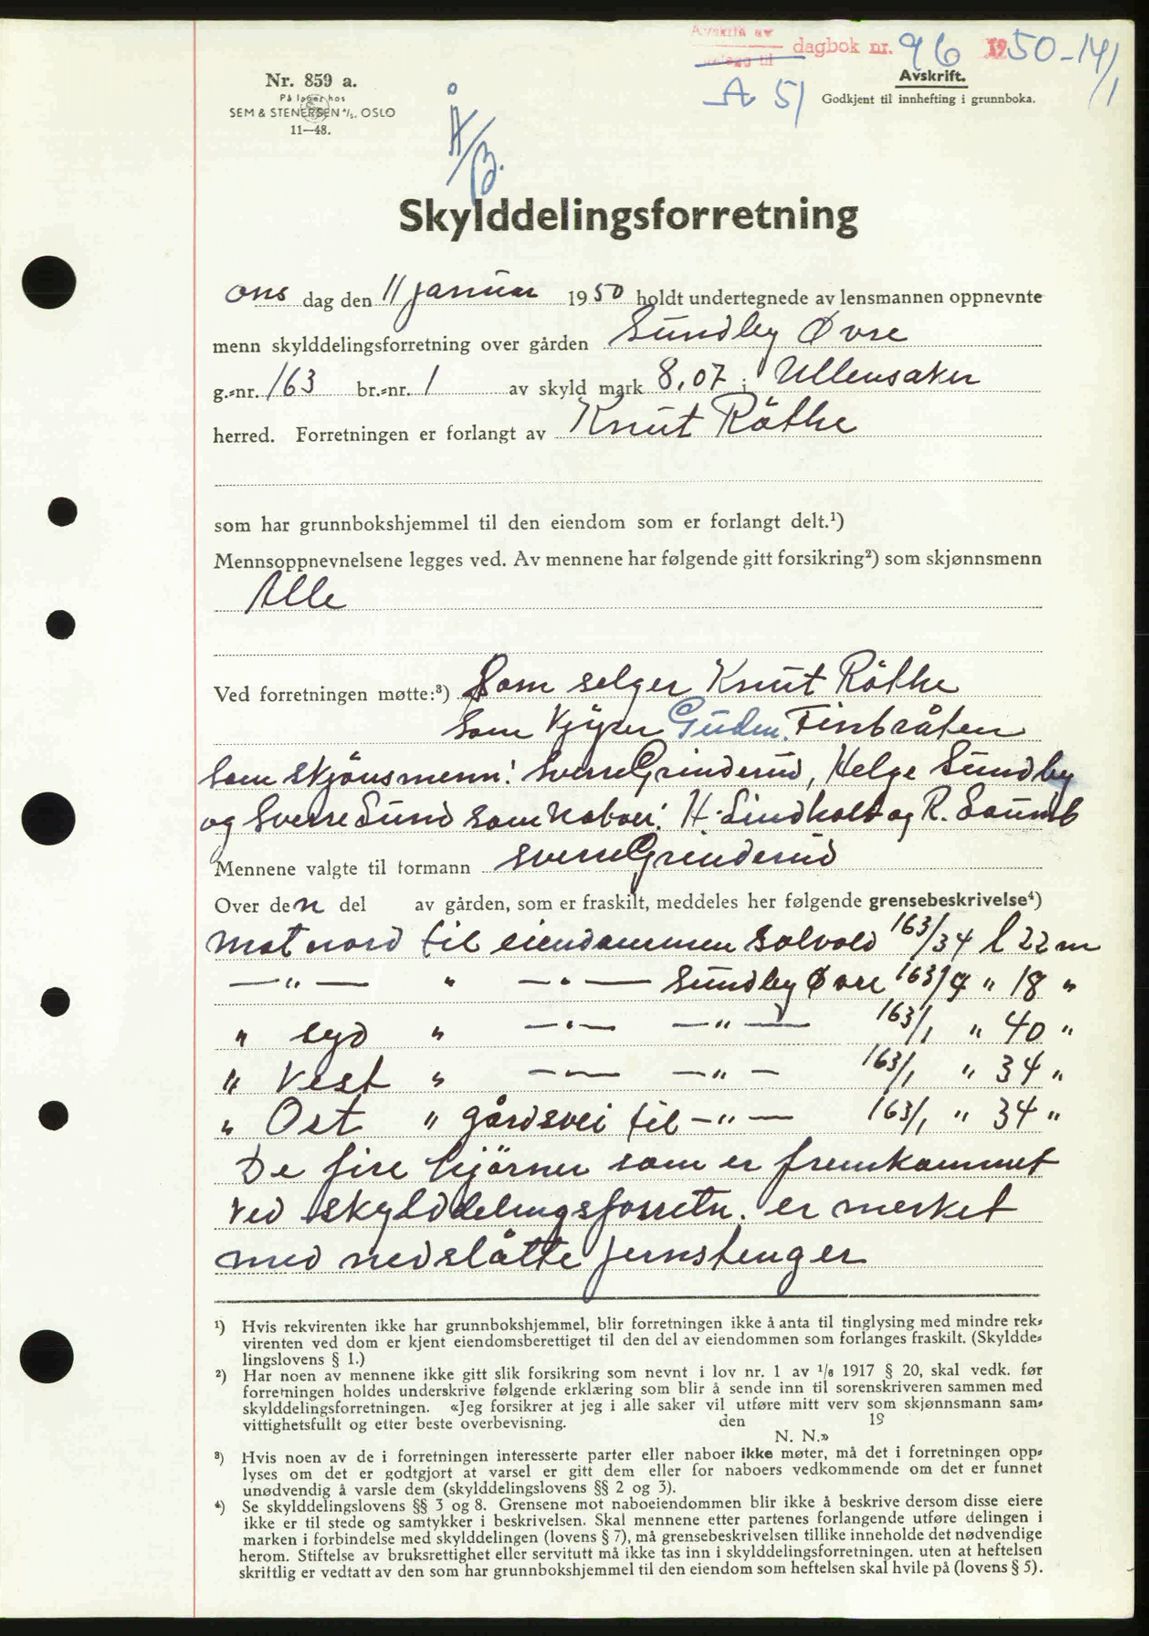 Avskrift av dagbok nr. 96 1950-14/1
bilegg til
A 51
Avskrift.
Godkjent til innhefting i grunnboka.
Nr. 859 a.
På lager hos
SEM & STENERSEN A/S. OSLO
11—48.
Å/B.
Skylddelingsforretning
ons dag den 11 januar 1950 holdt undertegnede av lensmannen oppnevnte
menn skylddelingsforretning over gården Sundby Øvre
g.-nr. 163 br.-nr. 1 av skyld mark 8,07 i Ullensaker
herred. Forretningen er forlangt av Knut Röthe
som har grunnbokshjemmel til den eiendom som er forlangt delt.¹)
Mennsoppnevnelsene legges ved. Av mennene har følgende gitt forsikring²) som skjønnsmenn
Alle
Ved forretningen møtte:³) Som selger Knut Röthe
Som Kjöper Gudm. Finbråten
Som skjönsmenn: Sverre Grinderud, Helge Sundby
og Sverre Sund som naboer: H. Lindholt og R.
Mennene valgte til formann Sverre Grinderud
Over den del av gården, som er fraskilt, meddeles her følgende grensebeskrivelse⁴)
Mot nord til eiendommen Solvold 163/34 l 22 m
—"— " —"— Sundby Øvre 163/9 " 18 "
" syd " —"— —"— 163/1 " 40 "
" Vest " —"— —"— 163/1 " 34 "
" Ost " gårdsvei til —"— 163/1 " 34 "
De fire hjörner som er fremkommet
ved skylddelingsforretn. er merket
med nedslåtte jernstenger
¹) Hvis rekvirenten ikke har grunnbokshjemmel, blir forretningen ikke å anta til tinglysing med mindre rek-
virenten ved dom er kjent eiendomsberettiget til den del av eiendommen som forlanges fraskilt. (Skyldde-
lingslovens § 1.)
²) Har noen av mennene ikke gitt slik forsikring som nevnt i lov nr. 1 av 1/6 1917 § 20, skal vedk. før
forretningen holdes underskrive følgende erklæring som blir å sende inn til sorenskriveren sammen med
skylddelingsforretningen. «Jeg forsikrer at jeg i alle saker vil utføre mitt verv som skjønnsmann sam-
vittighetsfullt og etter beste overbevisning. den 19
N. N.»
³) Hvis noen av de i forretningen interesserte parter eller naboer ikke møter, må det i forretningen opp-
lyses om det er godtgjort at varsel er gitt dem eller for naboers vedkommende om det er funnet
unødvendig å varsle dem (skylddelingslovens §§ 2 og 3).
⁴) Se skylddelingslovens §§ 3 og 8. Grensene mot naboeiendommen blir ikke å beskrive dersom disse eiere
ikke er til stede og samtykker i beskrivelsen. Skal mennene etter partenes forlangende utføre delingen i
marken i forbindelse med skylddelingen (lovens § 7), må grensebeskrivelsen tillike inneholde det nødvendige
herom. Stiftelse av bruksrettighet eller servitutt må ikke tas inn i skylddelingsforretningen. uten at heftelsen
skriftlig er vedtatt av den som har grunnbokshjemmel til den eiendom som heftelsen skal hvile på (lovens § 5).